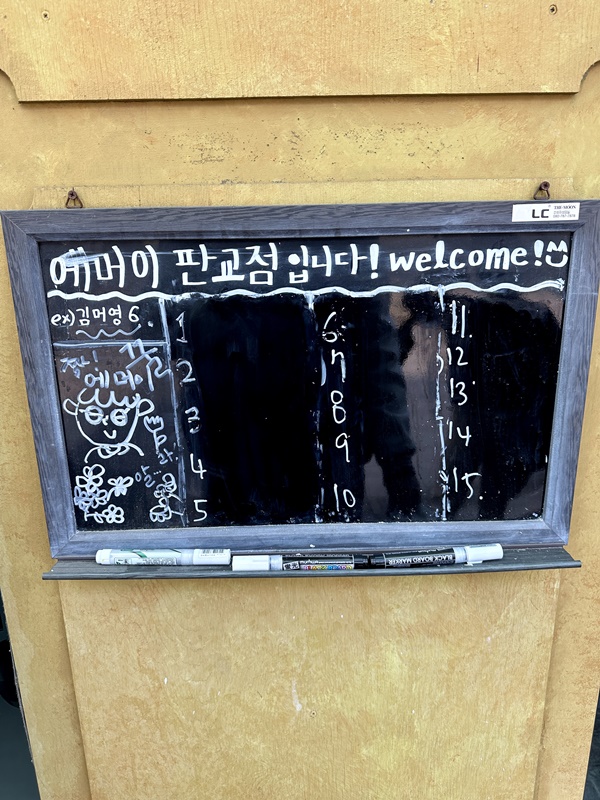 LC THE MOON
에머이 판교점입니다! welcome!
ex) 김머영 6
1
2
3
4
5
6
7
8
9
10
11.
12
13
14
15.
에머이
BLACK BOARD MARKER